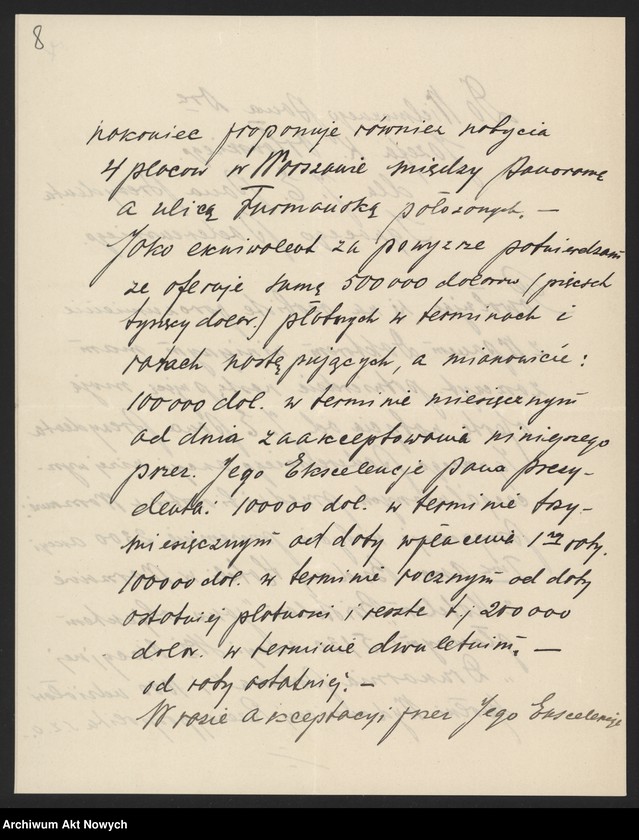 8
nakoniec proponuje również nabycia
4 placow w Warszawie między Panoramą
a ulicą Furmańską położonych. —
Jako ekwiwalent za powyższe potwierdzam
ze oferuje sumę 500000 dolarów (pięćset
tysięcy dolar.) płatnych w terminach i
ratach następujących, a mianowicie:
100000 dol. w terminie miesięcznym
od dnia zaakceptowania niniejszego
przez Jego Ekscelencje Pana Prezy-
denta: 100000 dol. w terminie trzy-
miesięcznym od daty wpłacenia 1ej raty.
100000 dol. w terminie rocznym od daty
ostatniej płatności i resztę t.j 200000
dolar. w terminie dwuletnim. —
od raty ostatniej. —
W razie akceptacyi przez Jego Ekscelencje
Archiwum Akt Nowych